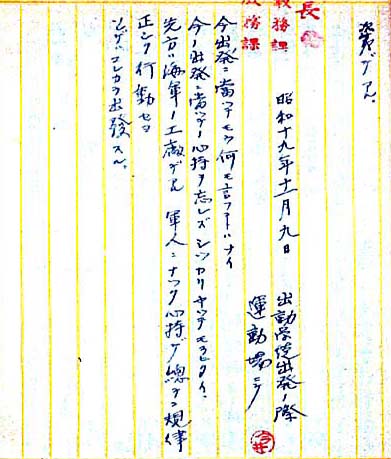 資デアル。
長
教務課
昭和十九年十一月九日
出動学徒出発ノ際
運動場ニテ
今出発ニ当ツテモウ何モ言フコトハナイ
今ノ出発ニ当ツテノ心持ヲ忘レズシツカリヤツテモラヒタイ。
先方ハ海軍ノ工廠デアル 軍人ニナツタ心持デ総テ規律
正シク行動セヨ
出発スル。